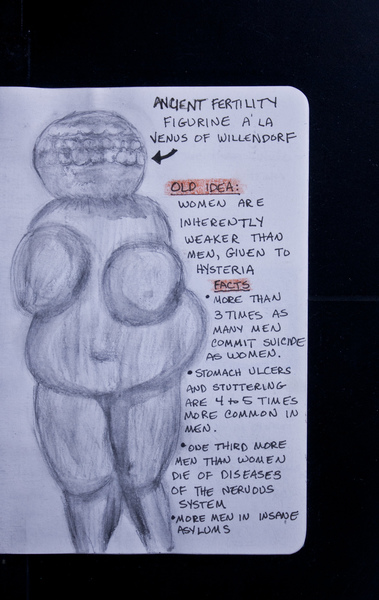 ANCIENT FERTILITY
FIGURINE A' LA
VENUS OF WILLENDORF
OLD IDEA:
WOMEN ARE
INHERENTLY
WEAKER THAN
MEN, GIVEN TO
HYSTERIA
FACTS
• MORE THAN
3 TIMES AS
MANY MEN
COMMIT SUICIDE
AS WOMEN.
• STOMACH ULCERS
AND STUTTERING
ARE 4 to 5 TIMES
MORE COMMON IN
MEN.
• ONE THIRD MORE
MEN THAN WOMEN
DIE OF DISEASES
OF THE NERVOUS
SYSTEM
• MORE MEN IN INSANE
ASYLUMS